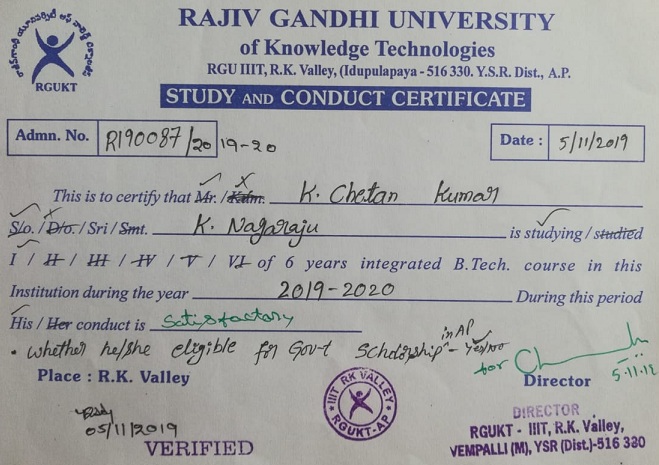 RAJIV GANDHI UNIVERSITY
of Knowledge Technologies
RGU IIIT, R.K. Valley, (Idupulapaya - 516 330. Y.S.R. Dist., A.P.
RGUKT
STUDY AND CONDUCT CERTIFICATE
Admn. No. R190087/2019-20 Date : 5/11/2019
This is to certify that Mr. / Kum. K. Chetan Kumar
S/o. / D/o. / Sri / Smt. K. Nagaraju is studying / studied
I / II / III / IV / V / VI of 6 years integrated B.Tech. course in this
Institution during the year 2019-2020 During this period
His / Her conduct is Satisfactory
• whether he/she eligible for Govt Scholarship in AP - Yes/No
for
Place : R.K. Valley Director
5.11.19
05/11/2019
VERIFIED
IIIT RK VALLEY
RGUKT-AP
DIRECTOR
RGUKT - IIIT, R.K. Valley,
VEMPALLI (M), YSR (Dist.)-516 330